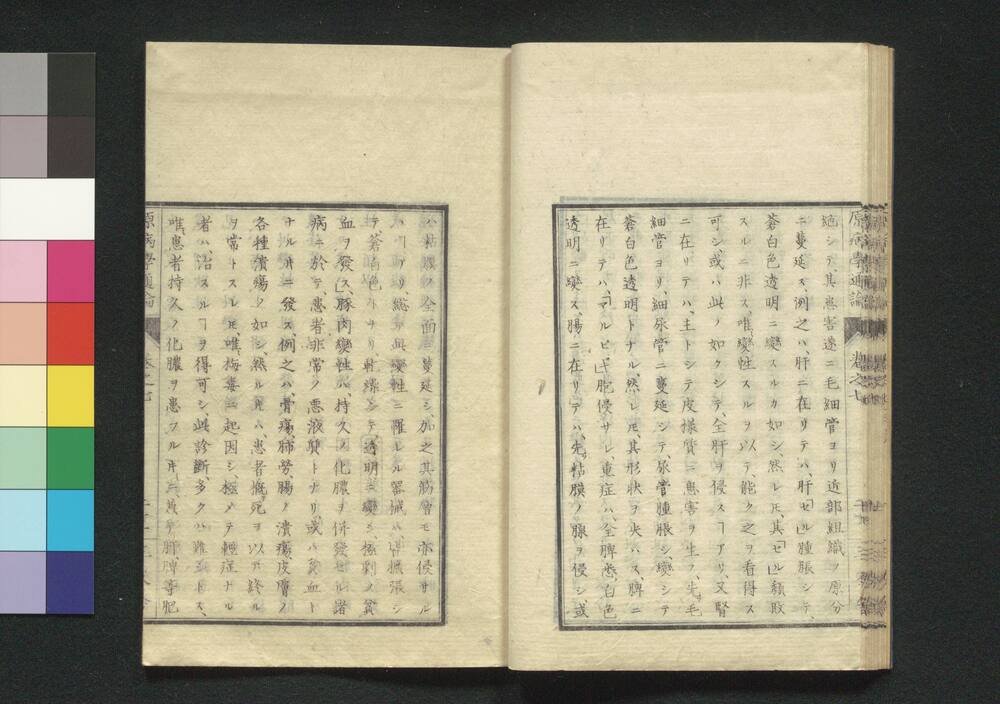 絶シテ、其患害遂ニ毛細管ヨリ近部組織ノ原分
ニ蔓延ス、例之ハ、肝ニ在リテハ、肝「セル」腫脹シテ、
蒼白色透明ニ變スルカ如シ、然レ𪜈、其「セル」頽敗
スルニ非ス、唯變性スルヲ以テ、能ク之ヲ看得ス
可シ、或ハ此ノ如クシテ、全肝ヲ侵スヿアリ、又腎
ニ在リテハ、主トシテ皮様質ニ患害ヲ生ス、先毛
細管ヨリ、細尿管ニ蔓延シテ、尿管腫脹シ、變シテ
蒼白色透明トナル、然レ𪜈、其形状ヲ失ハス、脾ニ
在リテハ、「マルピギー」胞侵サレ、重症ハ全脾悉ク白色
透明ニ變ス、腸ニ在リテハ、先粘膜ノ腺ヲ侵シ、或
原病學通論
卷之七
ハ粘膜ノ全面ニ蔓延シ、加之其筋層モ亦侵サル
ハヿアリ、總テ此變性ニ罹レル器械ハ、
テ、蒼白色トナリ、軟緩シテ透明ニ變シ、極剥ノ貧
血ヲ發ス、豚肉變性ハ、持久ノ化膿ヲ併發セル諸
病ニ於テ、患者非常ノ悪液質トナリ、或ハ貧血ト
ナル𪜈ニ發ス、例之ハ、骨瘍、肺勞、腸ノ潰瘍、皮膚ノ
各種潰瘍ノ如シ、然ル𪜈ハ、患者概死ヲ以テ終ル
ヲ常トスレ𪜈、唯梅毒ニ起因シ、極メテ輕症ナル
者ハ、治スルヿヲ得可シ、此診斷多クハ難シトス、
唯患者持久ノ化膿ヲ患フル𪜈ニ其肝脾等肥
原病學通論
卷之七